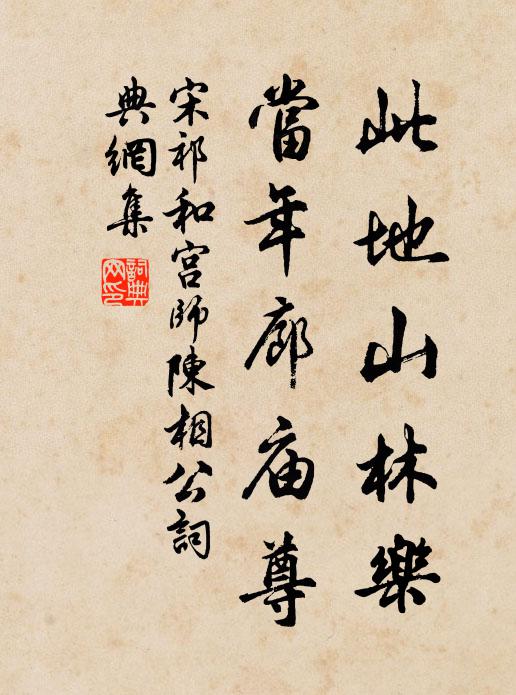 此地山林樂
當年廊庙尊
宋祁和宫師陳相公詞
典網集
詞典
网印